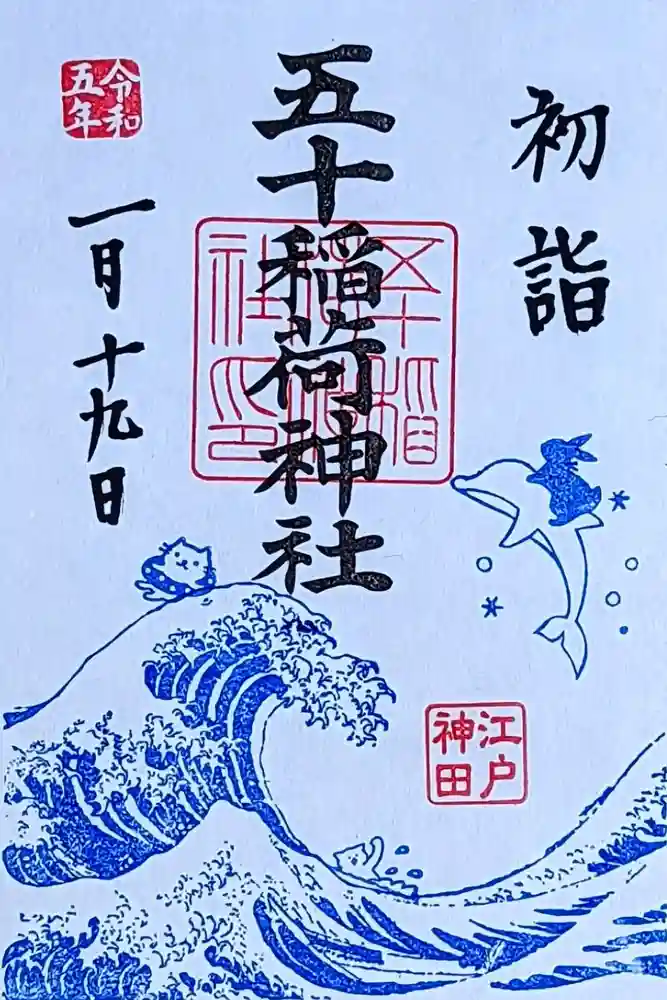 初詣
五十稲荷神社
五十稲荷神社印
江戸
神田
令和
五年
一月十九日